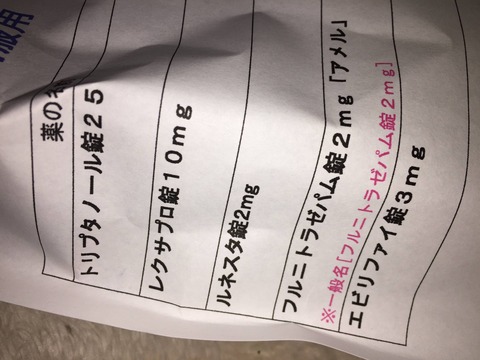 服用
薬の名
トリプタノール錠25
レクサプロ錠10mg
ルネスタ錠2mg
フルニトラゼパム錠2mg「アメル」
※一般名[フルニトラゼパム錠2mg]
エビリファイ錠3mg